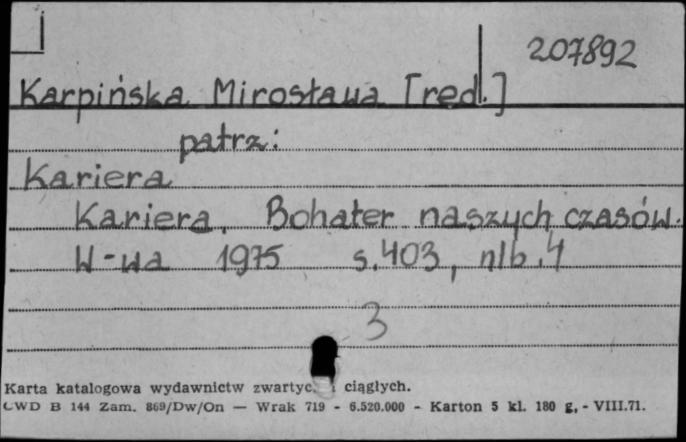 207892
Karpińska Mirosława [red.]
patrz:
Kariera
Kariera. Bohater naszych czasów.
W-wa 1975 s.403, nlb.4
3
Karta katalogowa wydawnictw zwartyc. i ciągłych.
CWD B 144 Zam. 869/Dw/On — Wrak 719 - 6.520.000 - Karton 5 kl. 180 g, - VIII.71.